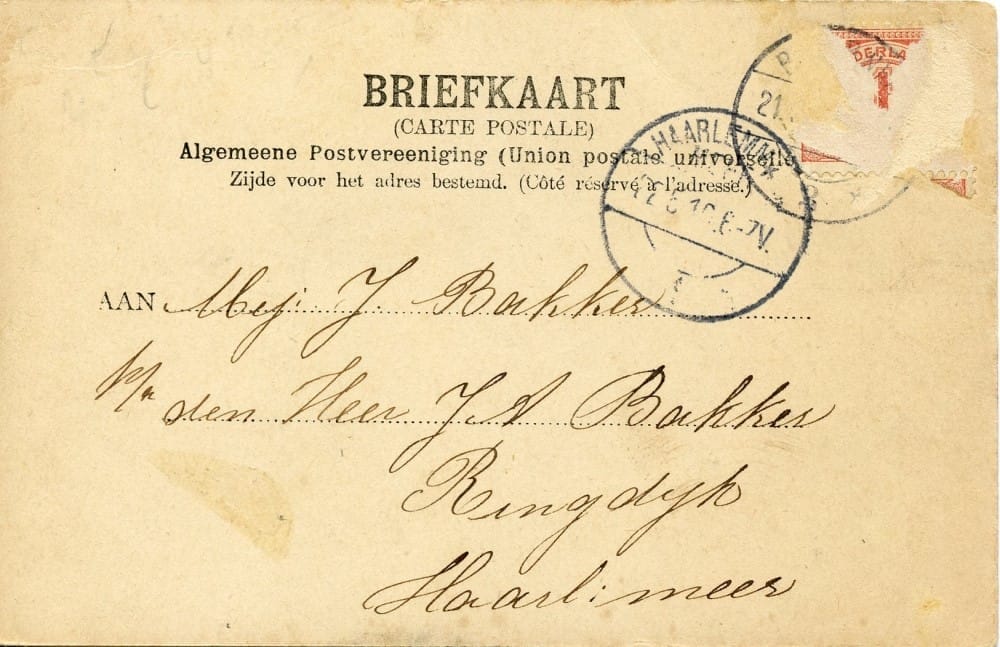 BRIEFKAART
(CARTE POSTALE)
Algemeene Postvereeniging (Union postale universelle
Zijde voor het adres bestemd. (Côté réservé à l'adresse.)
DERLA
1
21
HAARLEMM
AAN Mej J. Bakker
p/a den Heer J A Bakker
Ringdyk
Haarl: meer